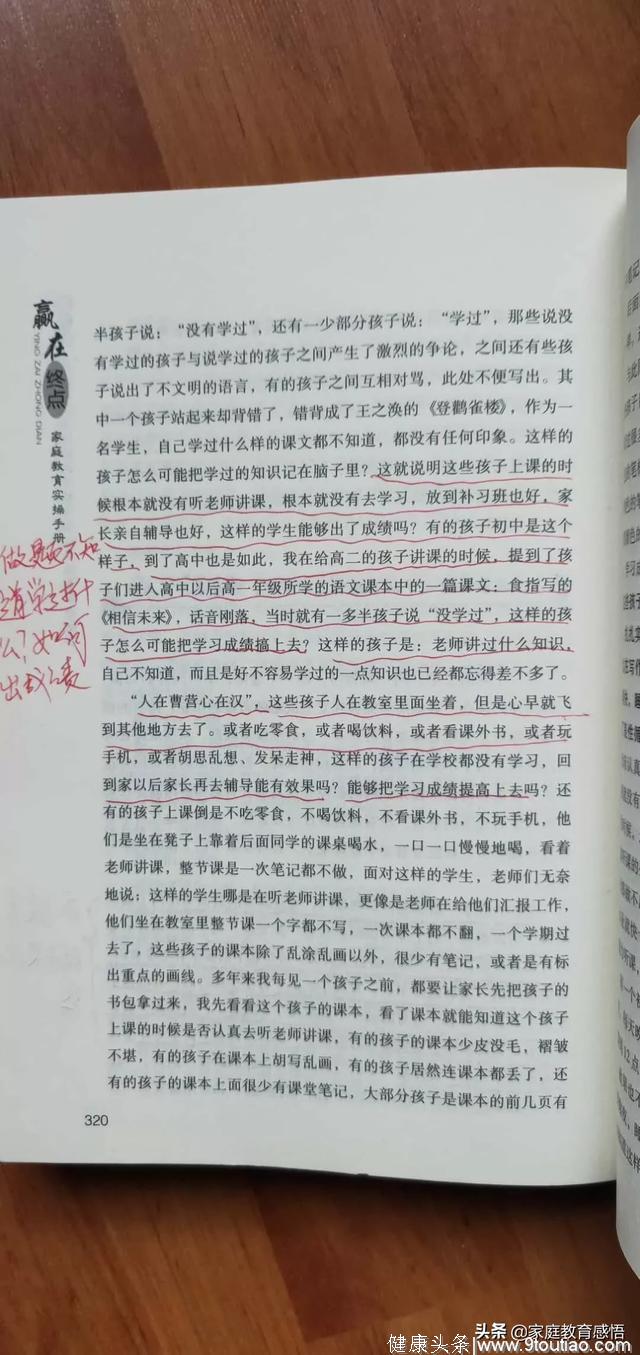 赢在终点
YING ZAI ZHONG DIAN
家庭教育实操手册
半孩子说：“没有学过”，还有一少部分孩子说：“学过”，那些说没
有学过的孩子与说学过的孩子之间产生了激烈的争论，之间还有些孩
子说出了不文明的语言，有的孩子之间互相对骂，此处不便写出。其
中一个孩子站起来却背错了，错背成了王之涣的《登鹳雀楼》，作为一
名学生，自己学过什么样的课文都不知道，都没有任何印象。这样的
孩子怎么可能把学过的知识记在脑子里？这就说明这些孩子上课的时
候根本就没有听老师讲课，根本就没有去学习，放到补习班也好，家
长亲自辅导也好，这样的学生能够出了成绩吗？有的孩子初中是这个
样子，到了高中也是如此，我在给高二的孩子讲课的时候，提到了孩
子们进入高中以后高一年级所学的语文课本中的一篇课文：食指写的
《相信未来》，话音刚落，当时就有一多半孩子说“没学过”，这样的孩
子怎么可能把学习成绩搞上去？这样的孩子是：老师讲过什么知识，
自己不知道，而且是好不容易学过的一点知识也已经都忘得差不多了。
“人在曹营心在汉”，这些孩子人在教室里面坐着，但是心早就飞
到其他地方去了。或者吃零食，或者喝饮料，或者看课外书，或者玩
手机，或者胡思乱想、发呆走神，这样的孩子在学校都没有学习，回
到家以后家长再去辅导能有效果吗？能够把学习成绩提高上去吗？还
有的孩子上课倒是不吃零食，不喝饮料，不看课外书，不玩手机，他
们是坐在凳子上靠着后面同学的课桌喝水，一口一口慢慢地喝，看着
老师讲课，整节课是一次笔记都不做，面对这样的学生，老师们无奈
地说：这样的学生哪是在听老师讲课，更像是老师在给他们汇报工作，
他们坐在教室里整节课一个字都不写，一次课本都不翻，一个学期过
去了，这些孩子的课本除了乱涂乱画以外，很少有笔记，或者是有标
出重点的画线。多年来我每见一个孩子之前，都要让家长先把孩子的
书包拿过来，我先看看这个孩子的课本，看了课本就能知道这个孩子
上课的时候是否认真去听老师讲课，有的孩子的课本少皮没毛，褶皱
不堪，有的孩子在课本上胡写乱画，有的孩子居然连课本都丢了，还
有的孩子的课本上面很少有课堂笔记，大部分孩子是课本的前几页有
320
不知
么？如何
出成绩
健康头条
www.9toutiao.com
头条 @家庭教育感悟